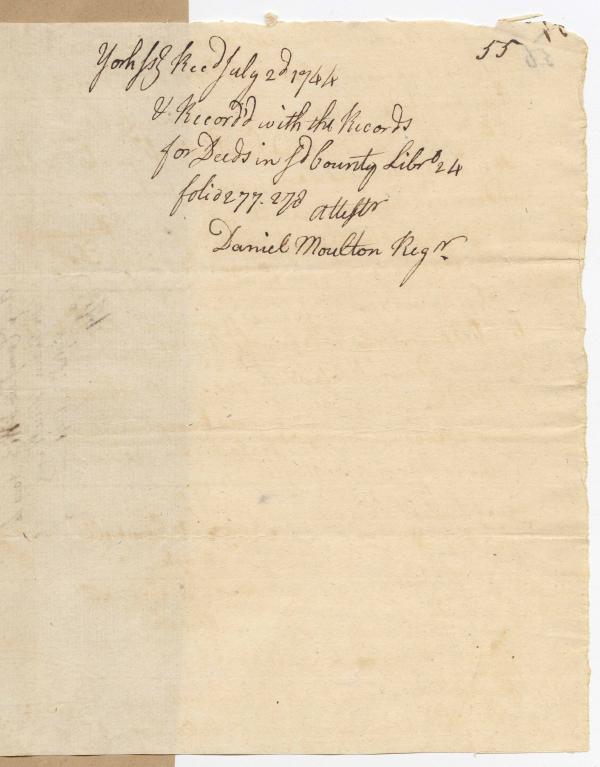 55
York ss Rec'd July 2d 1744
& Record'd with the Records
for Deeds in sd County Libro 24
folio 277.278
Attestr
Daniel Moulton Regr.